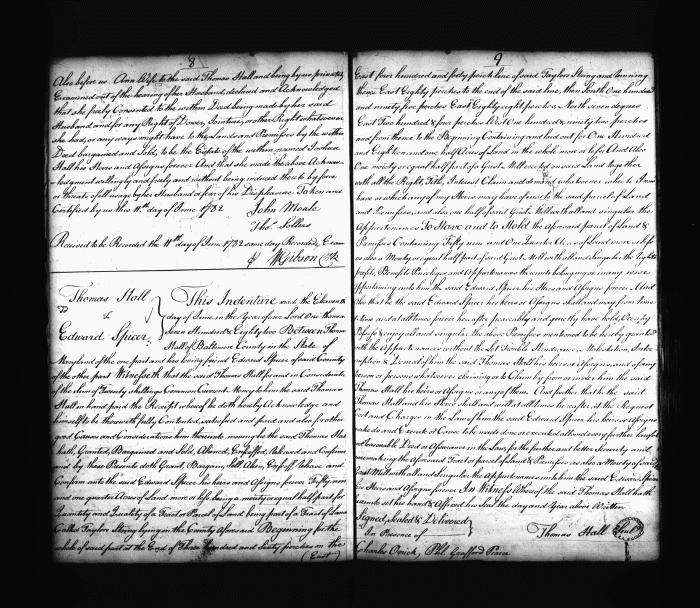 8
Also before us Ann Wife to the said Thomas Hall and being by us privately
Examined out of the hearing of her Husband, declared and Acknowledged
that she freely Consented to the within Deed being made by her said
Husband and for any Right of Dower, Jointure, or other Right whatsoever
she had, or any ways might have to the Lands and Premises by the within
Deed bargained and Sold, to be the Estate of the within named Joshua
Hall his Heirs and Assigns forever And that she made the above Acknow-
ledgment willingly and freely and without being induced thereto by force
or threats of ill usage by her Husband or fear of his Displeasure Taken and
Certified by us this 11th day of June 1782
John Moale
Thos. Sollers
Received to be Recorded the 11th day of June 1782 same day Recorded & Exam
& WGibson Clk
Thomas Hall
to
Edward Spicer
This Indenture made the Eleventh
day of June in the Year of our Lord One thousand
Seven Hundred & Eighty two Between Thomas
Hall of Baltimore County in the State of
Maryland of the one part and his loving friend Edward Spicer of said County
of the other part Witnesseth that the said Thomas Hall for and in Consideration
of the Sum of Twenty shillings Common Current Money to him the said Thomas
Hall in hand paid the Receipt whereof he doth hereby Acknowledge and
himself to be therewith fully Contented, satisfied and paid and also for other
good Causes and Considerations him thereunto moving he the said Thomas Hall
hath, Granted, Bargained and Sold, Aliened, Enfeoffed, Released and Confirmed
and by these Presents doth Grant, Bargain, Sell Alien, Enfeoff release and
Confirm unto the said Edward Spicer his heirs and Assigns forever Fifty nine
and one quarter Acres of Land more or less being a moiety or equal half part for
Quantity and Quality of a Tract or Parcel of Land being part of a Tract of Land
Called Taylors String lying in the County Aforesaid Beginning for the
whole of said part at the End of Three hundred and Sixty perches in the
(East)
9
East four hundred and forty perch line of said Taylors String and running
thence East Eighty perches to the end of the said line, then South One hundred
and ninety five perches East Eighty eight perches North seven degrees
East Two hundred & four perches West One hundred & ninety two perches
and from thence to the Beginning Containing and laid out for One Hundred
and Eighteen and one half Acres of Land in the whole more or less And Also
One moiety or equal half part of a Grist Mill erected on said Land together
with all the Right, Title, Interest Claim and demand whatsoever which I now
have or which any of my Heirs may have of in or to the said parcel of Land
and Premises, and also one half of said Grist Mill with all and singular the
Appurtenances To Have and to Hold the Aforesaid parcel of Land &
Premises Containing Fifty nine and One Quarter Acres of Land more or less
as also a Moiety or equal half part of said Grist Mill with all and Singular the Rights
profits, Benefits Privileges and Appurtenances thereunto belonging or in any wise
appertaining unto him the said Edward Spicer his Heirs and Assigns forever. And
also that he the said Edward Spicer his heirs or Assigns shall and may from time
to time and at all times forever hereafter peaceably and quietly have hold, Occupy
Possess & enjoy all and singular the above Premises mentioned to be hereby granted
with the Appurtenances without the Let Trouble Hindrance, Molestation, Inter-
ruption & Denial of him the said Thomas Hall his heirs or Assigns, and of any
person or persons whatsoever claiming or to Claim by from or under him the said
Thomas Hall his heirs or Assigns or any of them. And further that he the said
Thomas Hall and his Heirs shall and will at all times hereafter at the Request
Cost and Charges in the Law of him the said Edward Spicer his heirs or Assigns
make do and Execute or Cause to be made done or executed all and every further lawful
and reasonable Deed or Assurance in the Law for the further and better Security and
sure making the Aforesaid Tract or parcel of Land & Premises as also a Moiety of said
Grist Mill with all and Singular the Appurtenances unto him the said Edward Spicer
his Heirs and Assigns forever In Witness Whereof the said Thomas Hall hath
hereunto set his hand & Affixed his Seal the day and Year above Written
Signed, Sealed & Delivered
In Presence of
Thomas Hall Seal
Charles Orrick, Phil. Grafford Pearce